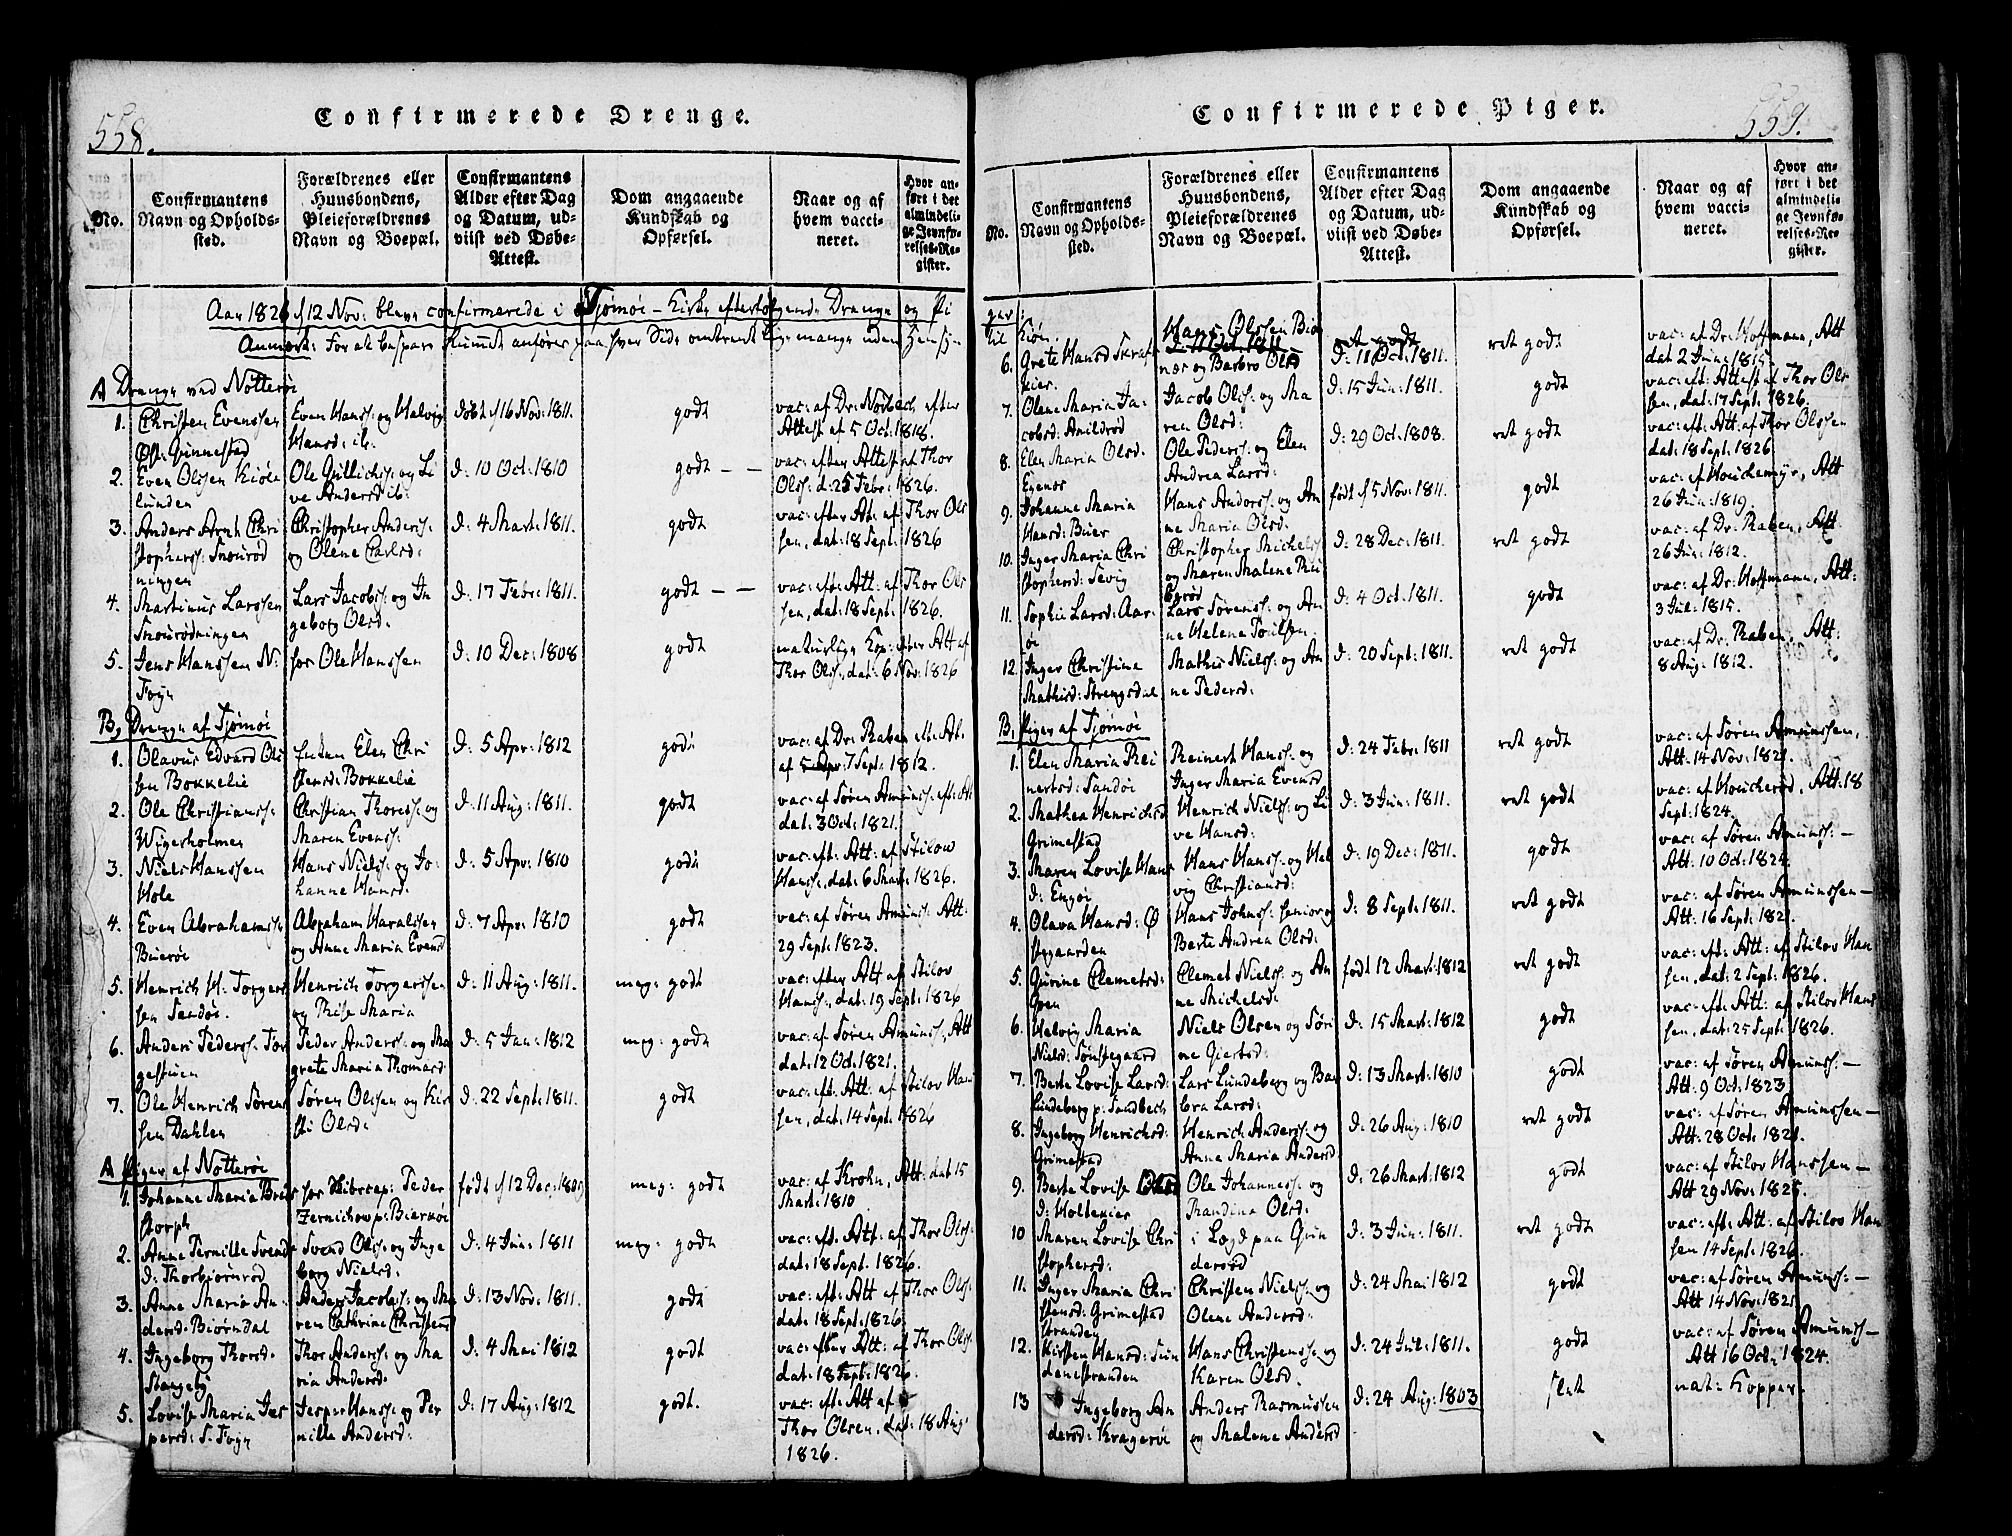 558.
Confirmerede Drenge.
No.
Confirmantens Navn og Opholds-sted.
Forældrenes eller Huusbondens, Pleieforældrenes Navn og Boepæl.
Confirmantens Alder efter Dag og Datum, ud-viist ved Døbe-Attest.
Dom angaaende Kundskab og Opførsel.
Naar og af hvem vacci-neret.
Hvor an-ført i det almindeli-ge Jevnfø-relses-Re-gister.
Aar 1826 d 12 Nov: bleve confirmerede i Tjömöe-Kirke efterfølgende Drenge og Pi
Anmærk: For at bespare Rummet anføres paa hver Side omtrent lige mange uden Hensyn
A Drenge ved Nötteröe
1. Christen Evenssen Øst: Ginnestad | Even Hans: og Helvig Hansd: ib. | döbt d 16 Nov: 1811. | godt | vac: af Dr: Norbech efter Attest af 5 Oct: 1818.
2. Even Olssen Kiöle lunden | Ole Gullichs: og Li ve Andersd: ib: | d: 10 Oct: 1810 | godt - - | vac: efter Attest af Thor Olss: d: 25 Febr: 1826.
3. Anders Arnt Chri stophers: Snourød ningen | Christopher Anders: og Olene Carlsd: | d: 4 Mart: 1811. | godt | vac: efter Att: af Thor Ols sen, dat: 18 Sept: 1826
4. Martinus Larssen Snourödningen | Lars Jacobs: og In geborg Olsd: | d: 17 Febr: 1811. | godt - - | vac: eft: Att: af Thor Ols sen, dat: 18 Sept: 1826.
5. Jens Hanssen N: Foyn | hos Ole Hanssen | d: 10 Dec: 1808 | godt | naturlige Kop: efter Att af Thor Ols: dat: 6 Nov: 1826
B, Drenge af Tjömöe
1. Olavus Edvard Ols sen Bokkelie | Enken Elen Chri stensd: Bokkelie | d: 5 Apr: 1812 | godt | vac: af Dr: Raben eft: At. af 7 Sept: 1812.
2. Ole Christianss: Wigesholmen | Christian Thoress: og Maren Evenss: | d: 11 Aug: 1811. | godt | vac: af Sören Amunss: eft: At dat: 3 Oct: 1821.
3. Niels Hanssen Hole | Hans Niels: og Jo hanne Hansd: | d: 5 Apr: 1810 | godt | vac: eft: Att: af Stilow Hanss: dat: 6 Mart: 1826.
4. Even Abrahamss: Bueröe | Abraham Haralssen og Anne Maria Evensd | d: 7 Apr: 1810 | godt | vac: af Sören Amuns: Att: 29 Sept: 1823.
5. Henrich H: Torgers sen Sandöe. | Henrich Torgerssen og Thise Maria | d: 11 Aug: 1811. | meg: godt | vac: efter Att af Stilov Hanss:, dat: 19 Sept: 1826
6. Anders Pederss: Tor gestuen | Peder Anderss: og Ma grete Maria Thomasd: | d: 5 Jan: 1812 | meg: godt | vac: af Sören Amuns:, Att dat: 12 Oct: 1821.
7. Ole Henrich Sörens sen Dahlen | Sören Olssen og Kir sti Olsd: | d: 22 Sept: 1811. | godt | vac: eft: Att: af Stilov Han sen, dat: 14 Sept: 1826
A Piger af Nötteröe
1. Johanne Maria Brus | Peder Zernichow p: Bierköe | födt d 12 Dec: 1809 | meg: godt | vac: af Krohn, Att: dat 15 Mart: 1810
2. Anne Pernille Svends d: Thorbiörnröd | Svend Ols: og Inge borg Nielsd: | d: 4 Jun: 1811 | meg: godt | vac: eft: Att: af Thor Ols: dat: 18 Sept: 1826.
3. Anne Maria An- dersd: Biörndal | Anders Jacobs: og Ma ren Cathrine Christensd | d: 13 Nov: 1811. | godt | vac: eft: Att af Thor Ols: dat: 18 Sept: 1826.
4. Ingeborg Thorsd: Stangeby | Thor Anderss: og Ma ria Andersd: | d: 4 Mai 1812 | godt | vac: efter Att: af Thor Ols: dat: 18 Sept: 1826.
5. Lovise Maria Jes persd: S. Foyn | Jesper Hans: og Per nille Andersd: | d: 17 Aug: 1812 | godt. | vac: eft: Att af Thor Olsen, dat: 18 Aug: 1826.
Confirmerede Piger.
559.
No.
Confirmantens Navn og Opholds-sted.
Forældrenes eller Huusbondens, Pleieforældrenes Navn og Boepæl.
Confirmantens Alder efter Dag og Datum, ud-viist ved Døbe-Attest.
Dom angaaende Kundskab og Opførsel.
Naar og af hvem vacci-neret.
Hvor an-ført i det almindeli-ge Jevnfø-relses-Re-gister.
ger:
til Kiön.
6. Grete Hansd | Hans Olssen og Barbro Olsd | d: 11 Oct: 1811. | ret godt | vac: af Dr: Hoffmann, Att dat 2 Jun: 1815
7. Olene Maria Ja- cobsd: Anildröd | Jacob Ols: og Ma ren Olsd: | d: 15 Jun: 1811. | godt | vac: eft: Attest af Thor Ols sen, dat: 17 Sept: 1826.
8. Elen Maria Olsd: Egenes | Ole Peders: og Elen Andrea Larsd: | d: 29 Oct: 1808. | ret godt | vac: eft: Att: af Thor Olssen dat: 18 Sept: 1826
9. Johanne Maria Hansd: Buer | Hans Anders: og An ne Maria Olsd: | födt d 5 Nov: 1811. | godt | Att 26 Jun: 1819.
10. Inger Maria Chri stophersd: Sevig | Christopher Michels: og Maren Malene | d: 28 Dec: 1811. | ret godt | vac: af Dr: Raben, Att. 26 Jun: 1812.
11. Sophie Larsd: Aar- öe | Lars Sörenss: og An ne Helene Poulsen | d: 4 Oct: 1811. | godt | vac: af Dr: Hoffmann, Att: 3 Jul: 1815.
12. Inger Christine Mathisd: Strengsdal | Mathis Niels: og An ne Pedersd: | d: 20 Sept: 1811. | ret godt | vac: af Dr. Raben, Att: 8 Aug: 1812.
B. Piger af Tjömöe
1. Elen Maria Rei nertsd: Sandöe | Reinert Hans: og Inger Maria Evensd | d: 24 Febr: 1811 | ret godt | vac: af Sören Amunssen, Att: 14 Nov: 1821.
2. Mathea Henrichsd Grimestad | Henrich Niels: og Li ve Hansd: | d: 3 Jun: 1811. | ret godt | vac: af Houckeröd, Att: 18 Sept: 1824.
3. Maren Lovise Hans d: Engöe | Hans Hanss: og Hel vig Christiansd: | d: 19 Dec: 1811. | godt | vac: af Sören Amuns: - Att: 10 Oct: 1824.
4. Olava Hansd: Ø stgaarden | Hans Johnss: senior og Berte Andrea Olsd: | d: 8 Sept: 1811. | ret godt | vac: af Sören Amunssen - Att: 16 Sept: 1821.
5. Gurine Clemetsd: | Clemet Niels: og An ne Michelsd: | födt 12 Mart: 1812 | ret godt | vac: eft: Att: af Stilov Han sen, dat: 2 Sept: 1826.
6. Helvig Maria Nielsd: Sönstegaard | Niels Olsen og Söri ne Giertsd: | d: 15 Mart: 1812 | godt | vac: eft: Att: af Stilov Hans sen, dat: 25 Sept: 1826.
7. Berte Lovise Larsd: Lundeberg p: Sandbech | Lars Lundeberg og Bar bra Larsd: | d: 13 Mart: 1810 | godt | vac: af Sören Amunss: - Att: 9 Oct: 1823
8. Ingeborg Henrichsd: Grimestad | Henrich Anderss: og Anna Maria Andersd | d: 26 Aug: 1810 | ret godt | vac: af Sören Amunssen - Att: 28 Oct: 1821.
9. Berte Lovise Ols d: Holtekier | Ole Johanness: og Randina Olsd: | d: 26 Mart: 1812 | godt | vac: af Stilov Hanssen - Att 29 Nov: 1825.
10 Maren Lovise Chri stophersd: | i Logd paa Grin deröd | d: 3 Jun: 1811. | ret godt | vac: eft: Att: af Stilov Han sen 14 Sept: 1826.
11. Inger Maria Chri stensd: Grimestad stranden | Christen Niels: og Olene Andersd: | d: 24 Mai 1812 | godt | vac: af Sören Amuns: - Att 14 Nov: 1821
12. Kirsten Hansd: Sun denestranden | Hans Christenss: og Karen Olsd. | d: 24 Jul: 1811. | godt | vac: af Sören Amunss - Att 16 Oct: 1824.
13 Ingeborg An dersd: Krageröe | Anders Rasmussen og Malene Andersd | d: 24 Aug: 1803 | slet | nat: Kopper.